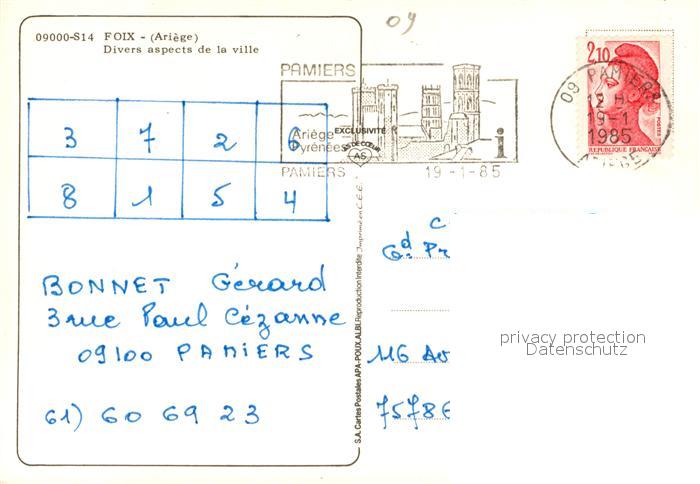 09
09000-S14 FOIX - (Ariège)
Divers aspects de la ville
PAMIERS
Ariège
Pyrénées
PAMIERS 19-1-85
EXCLUSIVITÉ
AS DE CŒUR
AS
i
2,10
POSTES
REPUBLIQUE FRANÇAISE
09 PAMIERS
12 H
19-1
1985
ARIEGE
3 7 2 6
8 1 5 4
BONNET Gérard
3 rue Paul Cézanne
09100 PAMIERS
61) 60 69 23
S.A. Cartes Postales APA-POUX, ALBI. Reproduction Interdite Imprimé en C.E.E.
C
Gd Pr
116 Av
7578
privacy protection
Datenschutz